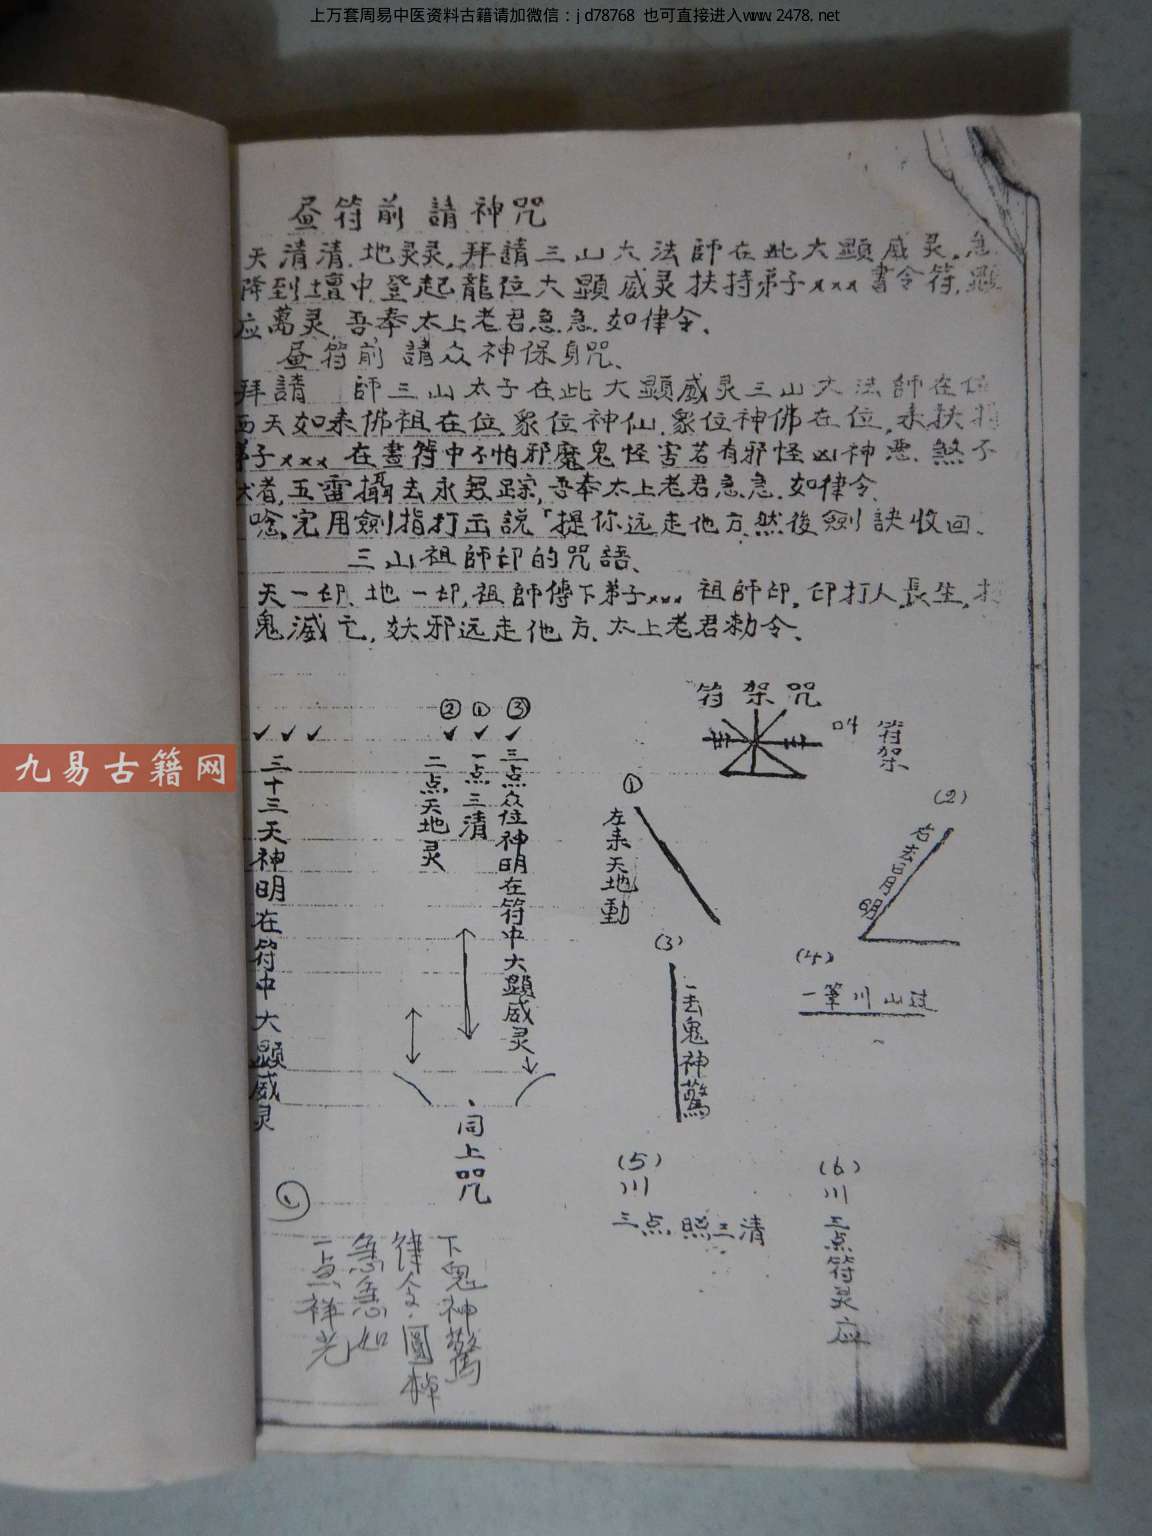 上万套周易中医资料古籍请加微信：jd78768 也可直接进入www.2478.net
昼符前請神咒
天清清.地灵灵.拜請三山大法師在此大顯威灵.急
降到壇中.登起龍位大顯威灵扶持弟子xxx書令符.顯
应萬灵.吾奉太上老君急急.如律令.
昼符前請众神保身咒.
拜請 師三山太子在此大顯威灵三山大法師在位
西天如来佛祖在位.衆位神仙.衆位神佛在位,来扶持
弟子xxx在畫符中不怕邪魔鬼怪害若有邪怪凶神悪.煞不
伏者.五雷攝去永無踪,吾奉太上老君急急.如律令.
唸完用劍指打出説「提你远走他方.然後劍訣收回.
三山祖師印的咒語.
天一印.地一印,祖師傳下弟子xxx祖師印.印打人.長生.打
鬼滅亡,妖邪远走他方.太上老君勅令.
符架咒
叫 符架
② ① ③
三十三天神明在符中大顯威灵
二点天地灵
一点三清
三点众位神明在符中大顯威灵
同上咒
①
左来天地動
(2)
右去日月明
(3)
一去鬼神驚
(4)
一筆川山过
(5)
川
三点照三清
(6)
川
三点符灵应
一点祥光
急急如
律令.圓
下鬼神驚
九易古籍网